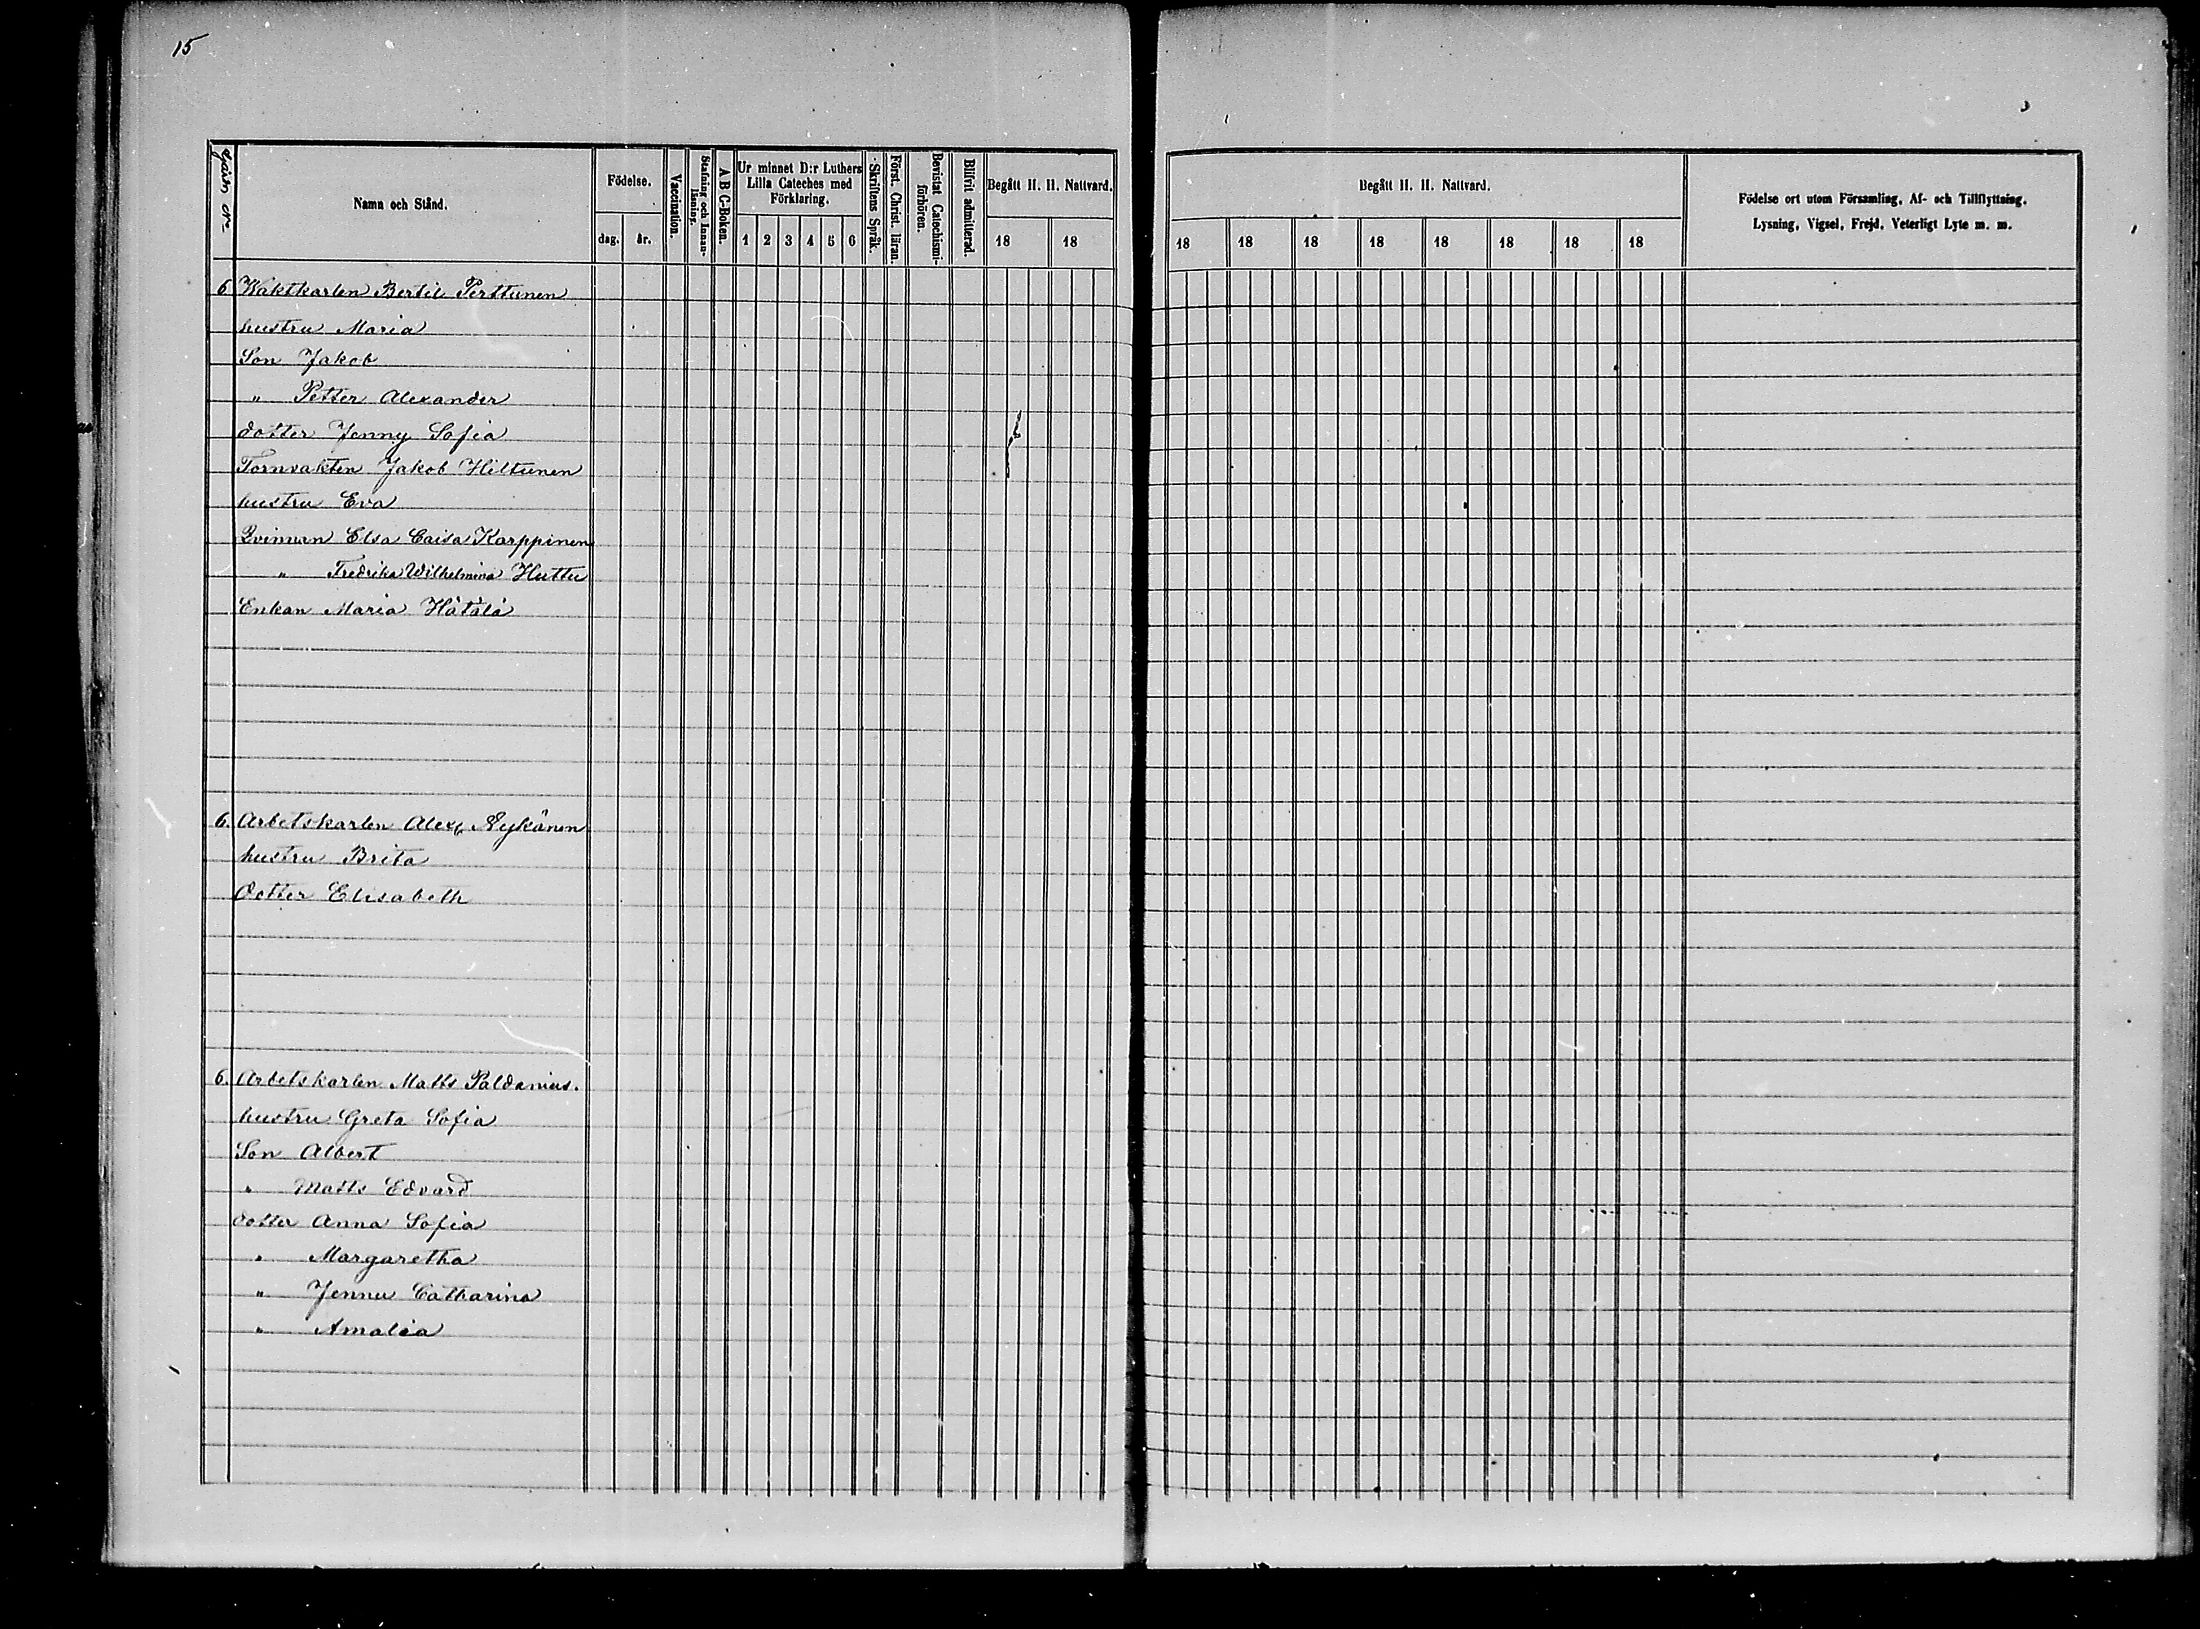 15
Gårds N:o
Namn och Stånd.
Födelse.
dag. år.
Vaccination.
Stafning och Innan-
läsning.
A B C-Boken.
Ur minnet D:r Luthers
Lilla Cateches med
Förklaring.
1 2 3 4 5 6
Skriftens Språk.
Först. Christ. läran.
Bevistat Catechismi-
förhören.
Blifvit admitterad.
Begått H. H. Nattvard.
18 18
Begått H. H. Nattvard.
18 18 18 18 18 18 18 18
Födelse ort utom Församling, Af- och Tillflyttning,
Lysning, Vigsel, Frejd, Veterligt Lyte m. m.
6 Waktkarlen Bertil Perttunen
hustru Maria
Son Jakob
" Petter Alexander
dotter Jenny Sofia
Tornvakten Jakob Hiltunen
hustru Eva
Qvinnan Elsa Caisa Karppinen
" Fredrika Wilhelmina Huttu
Enkan Maria Hätälä
6. Arbetskarlen Alex. Nykänen
hustru Brita
dotter Elisabeth
6. Arbetskarlen Matts Paldanius.
hustru Greta Sofia
Son Albert
" Matts Edvard
dotter Anna Sofia
" Margaretha
" Jenny Catharina
" Amalia